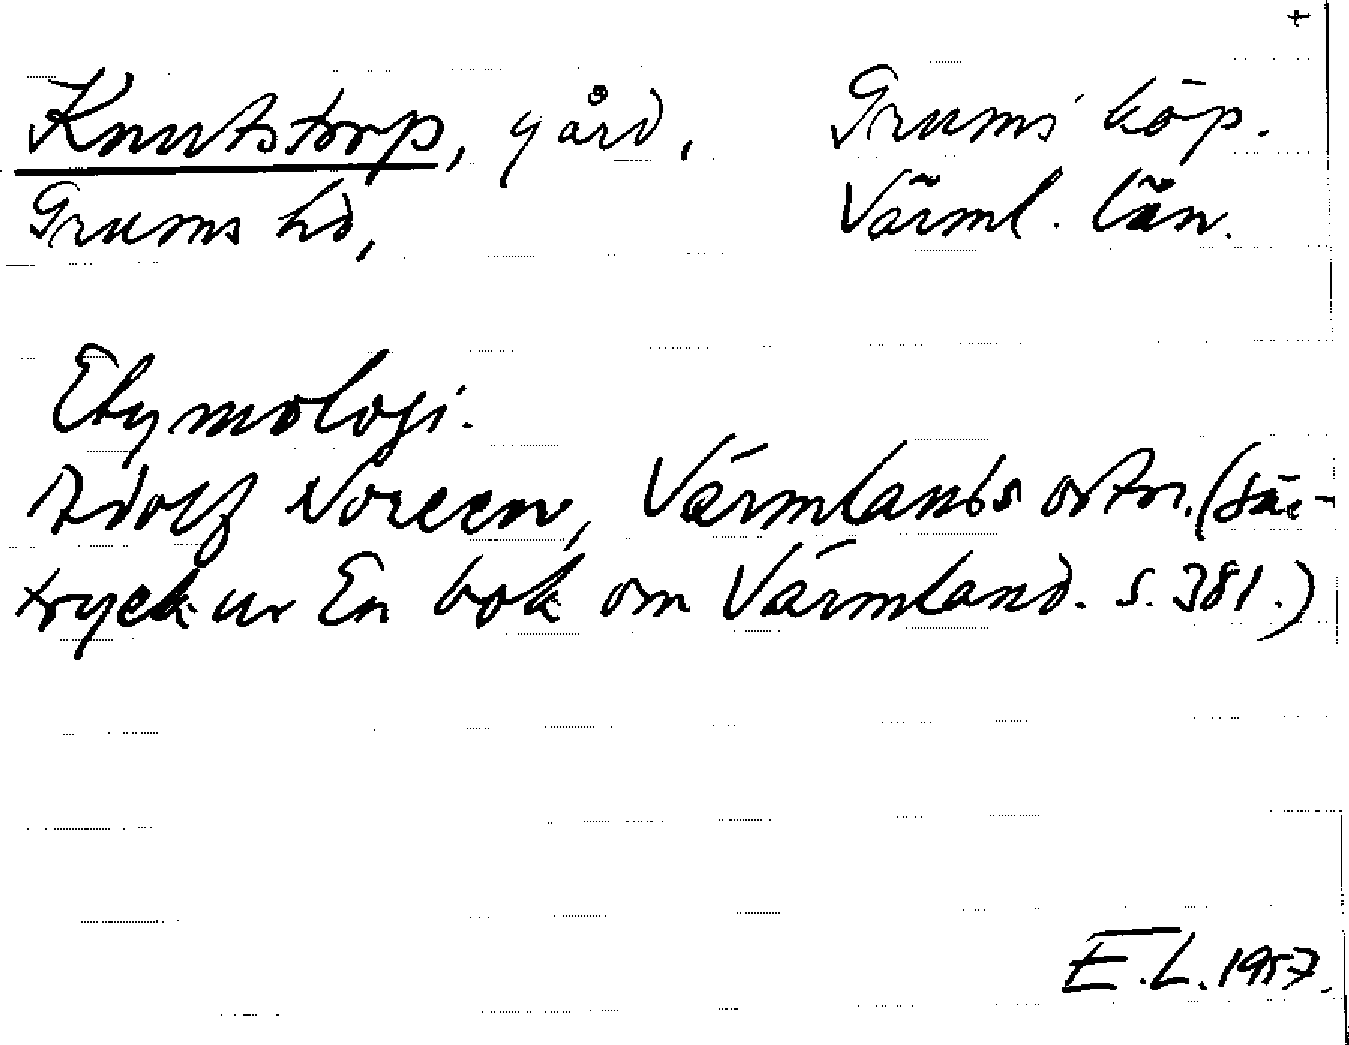 +
Knutstorp, gård, Grums köp.
Grums hd, Värml. län.
Etymologi.
Adolf Noreen, Värmlands ortn. (sär-
tryck ur En bok om Värmland. s. 381.)
E.L. 1957.